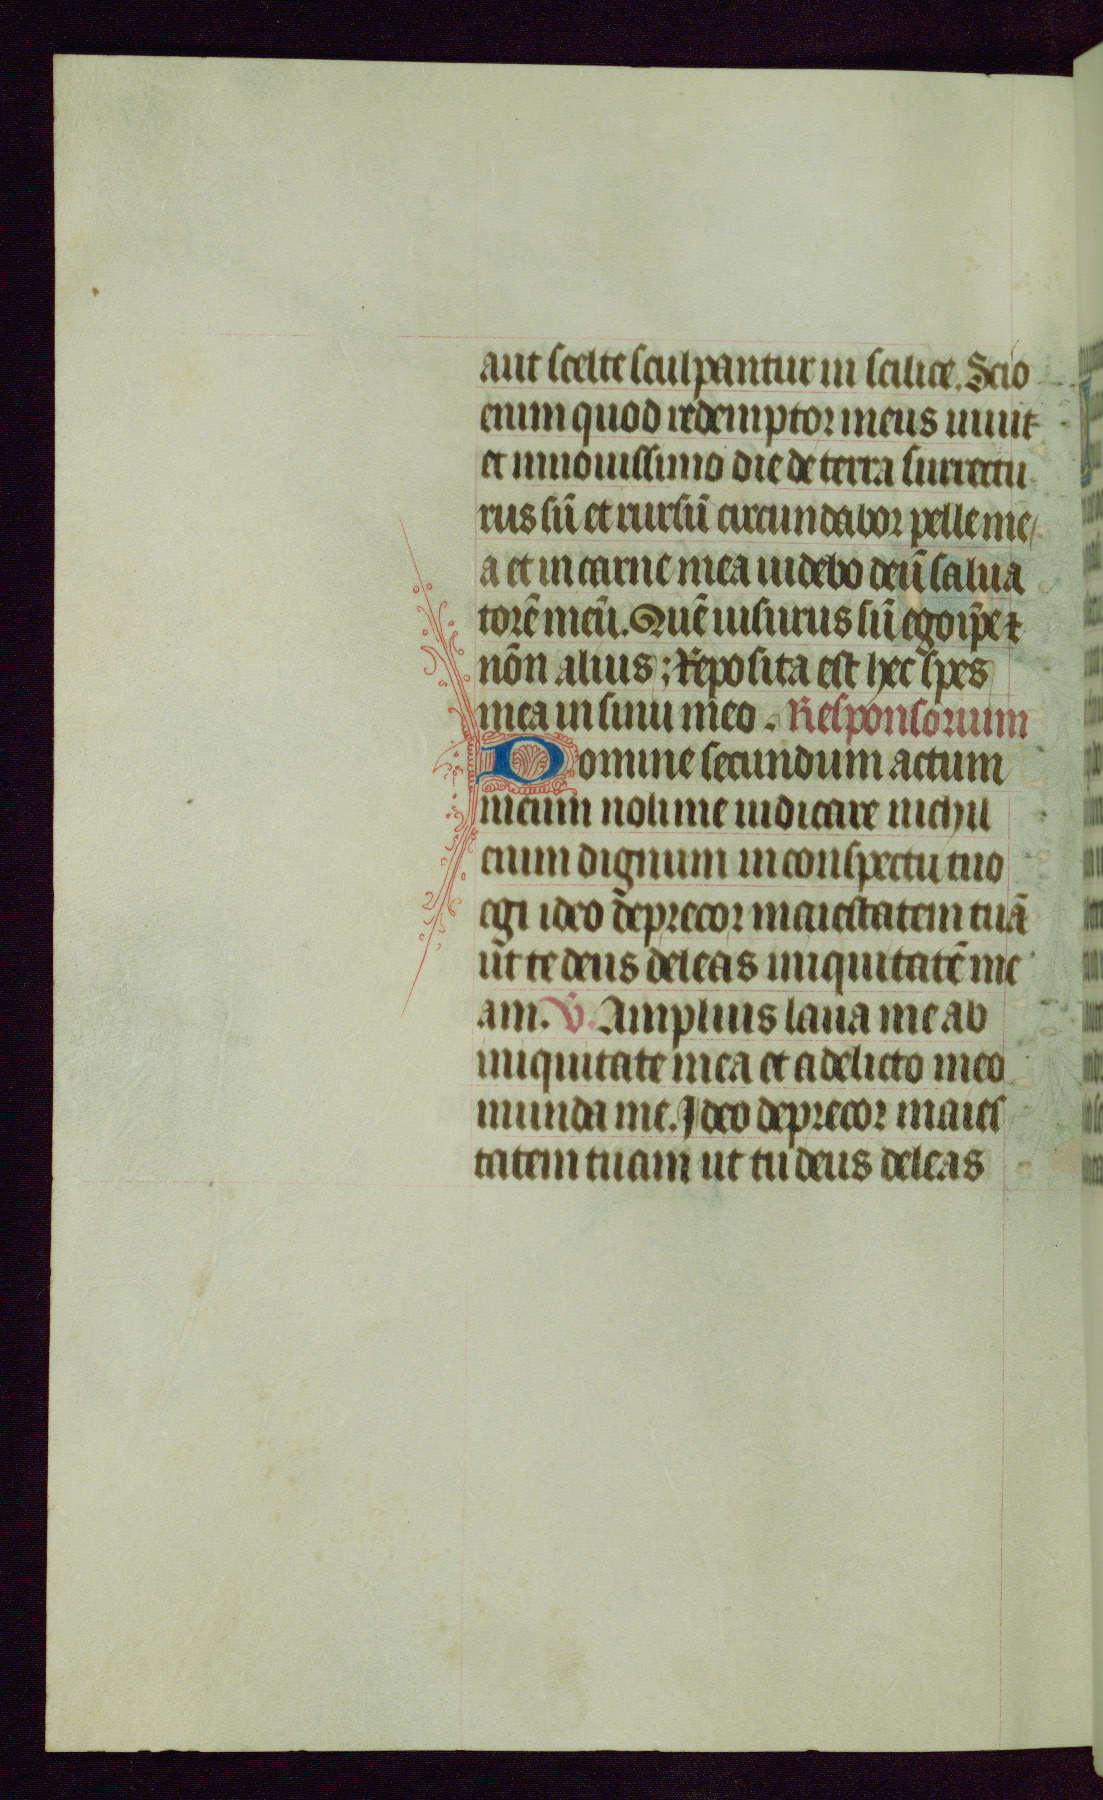 aut scelte sculpantur in scilice. Scio
enim quod redemptor meus uiuit
et innouissimo die de terra surrectu
rus sũ et rursũ circundabor pelle me
a et in carne mea uidebo deũ salua
torẽ meũ. Quẽ uisurus sũ ego ip̃e ⁊
nõn alius; Reposita est hec spes
mea in sinu meo. Responsorium
Domine secundum actum
meum noli me iudicare nichil
enim dignum in conspectu tuo
egi ideo deprecor maiestatem tuã
ut te deus deleas iniquitatẽ me
am. V̷. Amplius laua me ab
iniquitate mea et a delicto meo
munda me. Ideo deprecor maies
tatem tuam ut tu deus deleas